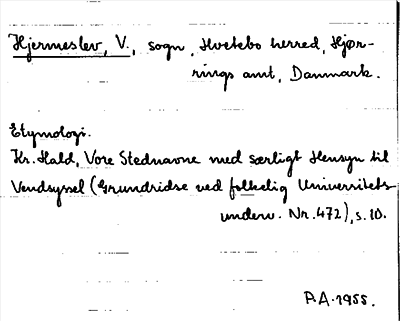 Hjermeslev, V., sogn, Hvetebo herred, Hjør-
rings amt, Danmark.
Etymologi.
Kr. Hald, Vore Stednavne med særligt Hensyn til
Vendsyssel (Grundridse ved folkelig Universitets-
underv. Nr. 472), s. 10.
P.A. 1955.